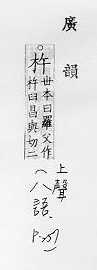 廣韻
。杵
世本曰雍父作
杵臼昌與切二
上聲
(八語.